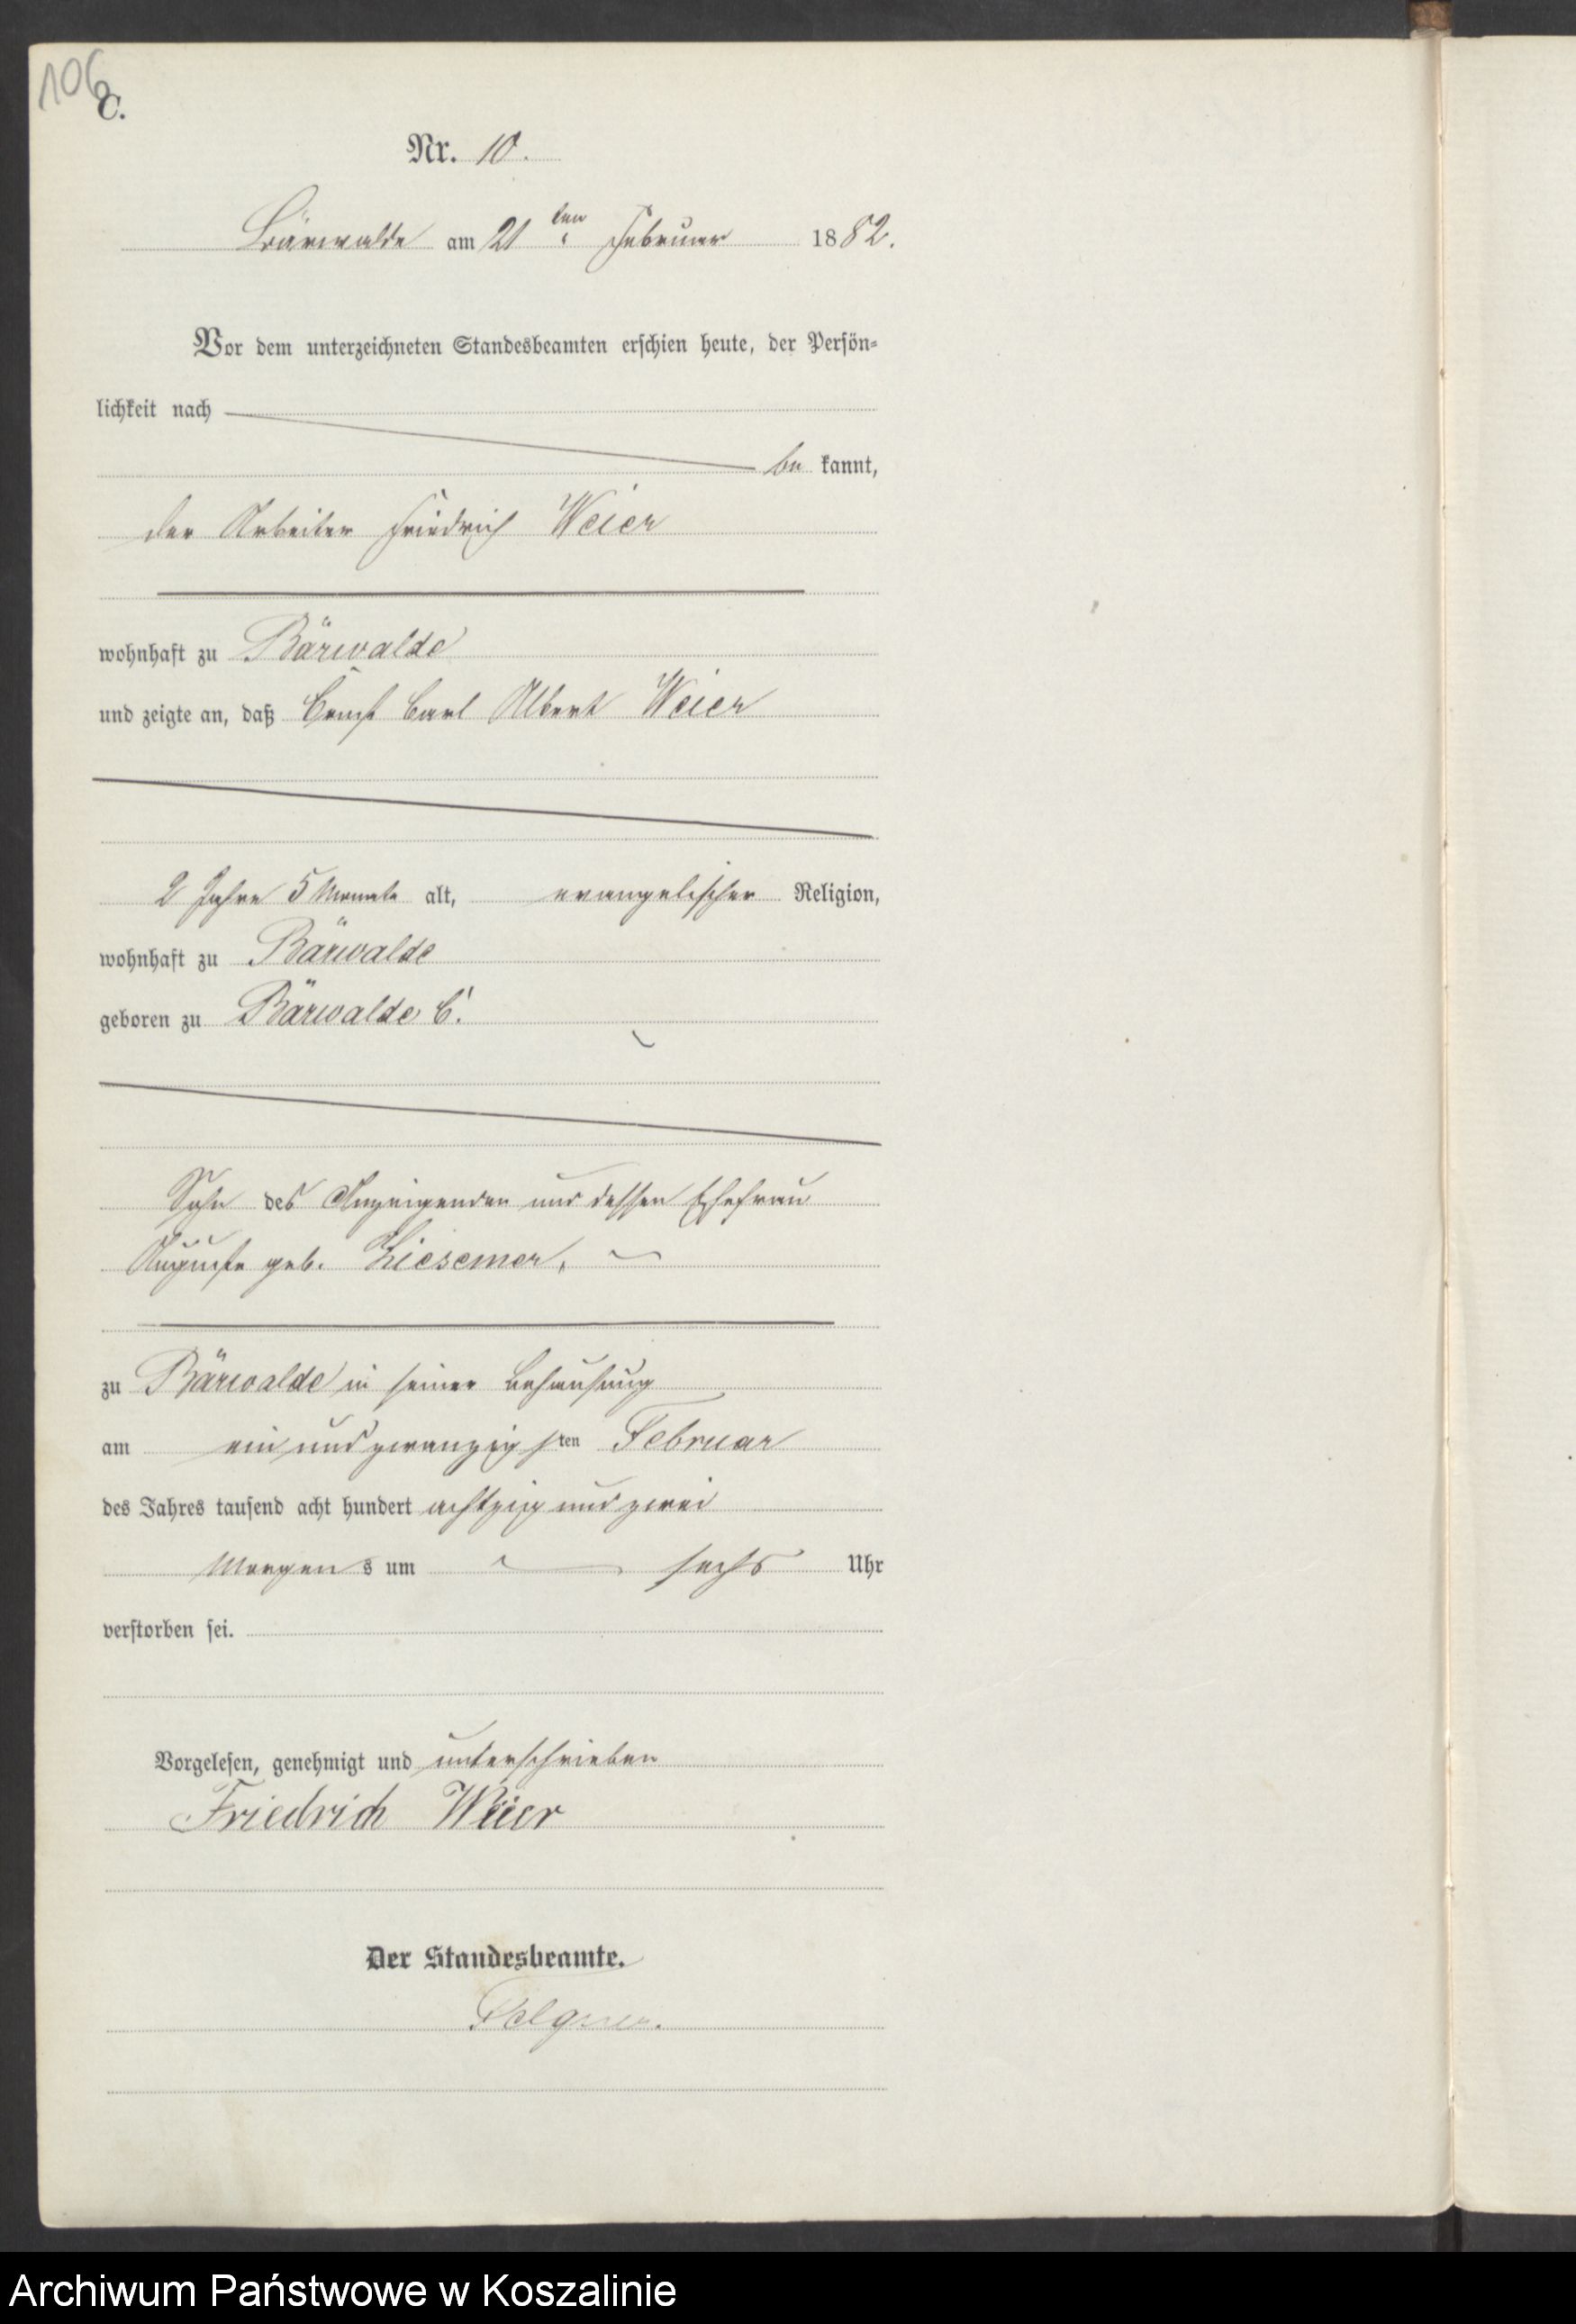 106
C.
Nr. 10.
Bärwalde am 21 ten Februar 1882.
Vor dem unterzeichneten Standesbeamten erschien heute, der Persön-
lichkeit nach
be kannt,
der Arbeiter Friedrich Weier
wohnhaft zu Bärwalde
und zeigte an, daß Ernst Carl Albert Weier
2 Jahre 5 Monate alt, evangelischer Religion,
wohnhaft zu Bärwalde
geboren zu Bärwalde C.
Sohn des Anzeigenden und dessen Ehefrau
Auguste geb. Liesemer,
zu Bärwalde in seiner Behausung
am ein und zwanzig sten Februar
des Jahres tausend acht hundert achtzig und zwei
Morgen s um sechs Uhr
verstorben sei.
Vorgelesen, genehmigt und unterschrieben
Friedrich Weier
Der Standesbeamte.
Archiwum Państwowe w Koszalinie